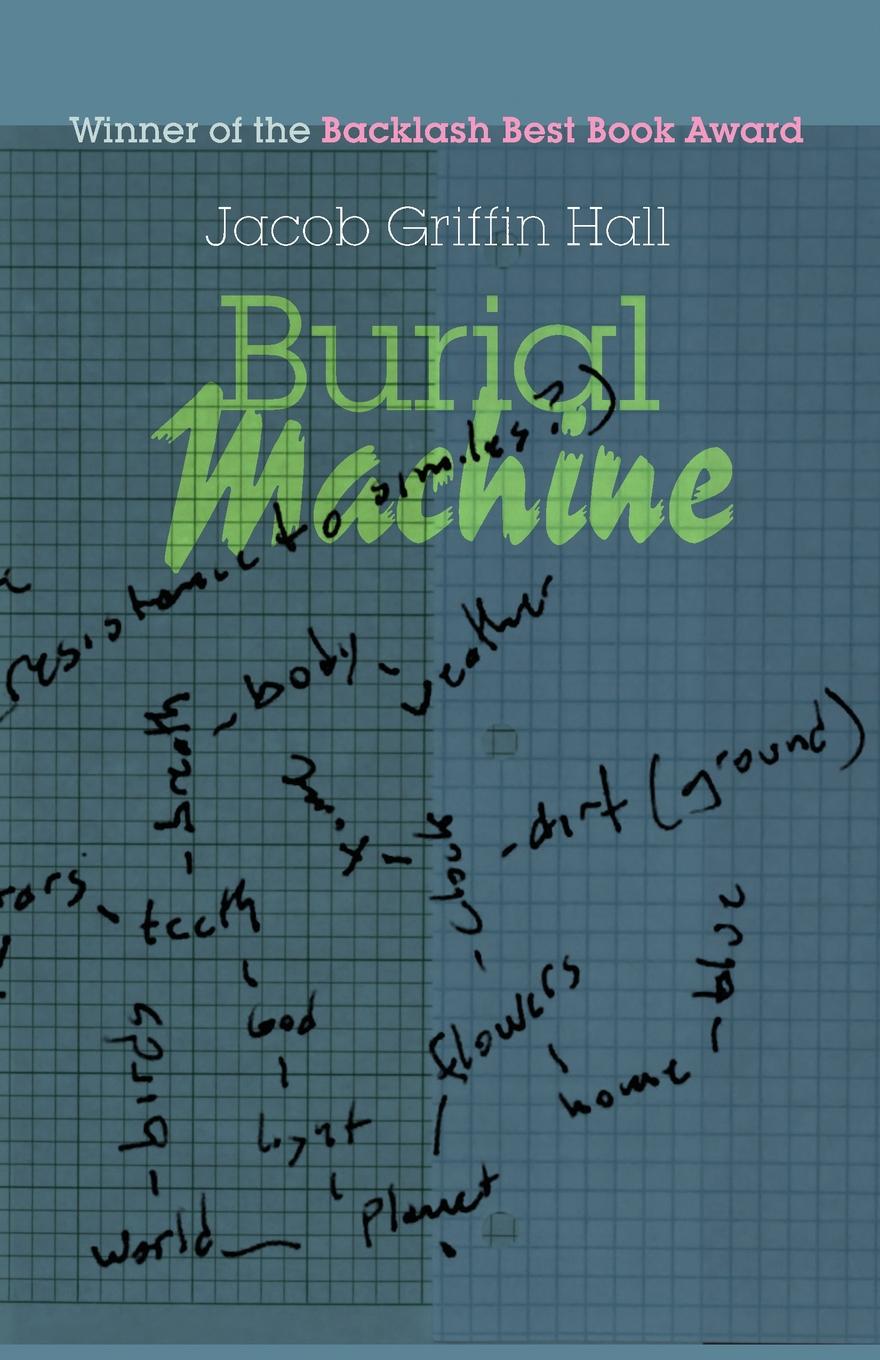 Winner of the Backlash Best Book Award
Jacob Griffin Hall
Burial
Machine
resistance to smiles?)
- body -
weather
breath -
mix -
rock -
- dirt (ground)
rors
- teeth
-
God
-
light
-
birds -
flowers
home -
planet
world —